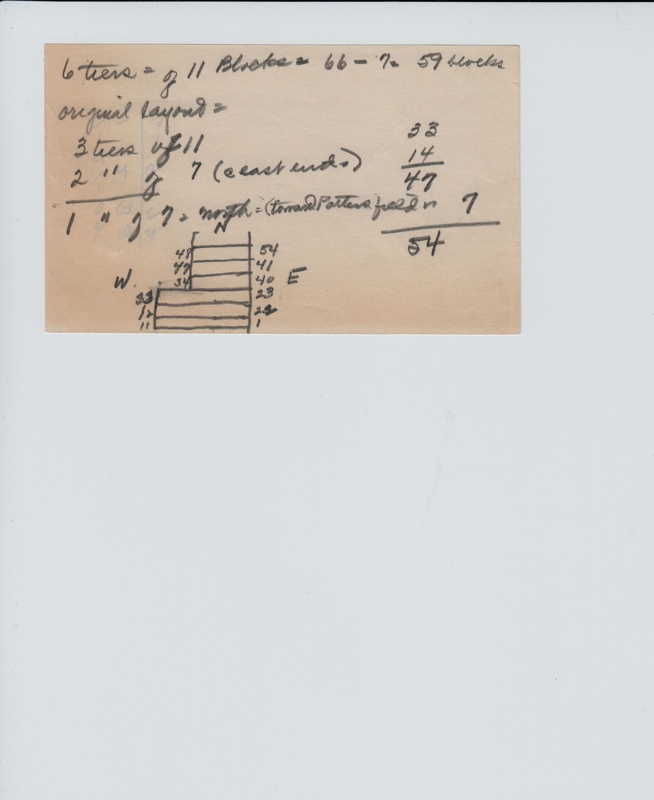 6 tiers = of 11 Blocks = 66 - 7 = 59 blocks
original layout =
3 tiers of 11
33
2 " of 7 (east ends)
14
47
1 " of 7 = north = (toward Potters field =
7
54
N
48 54
47 41
34 40
W. E
33 23
12 22
11 1